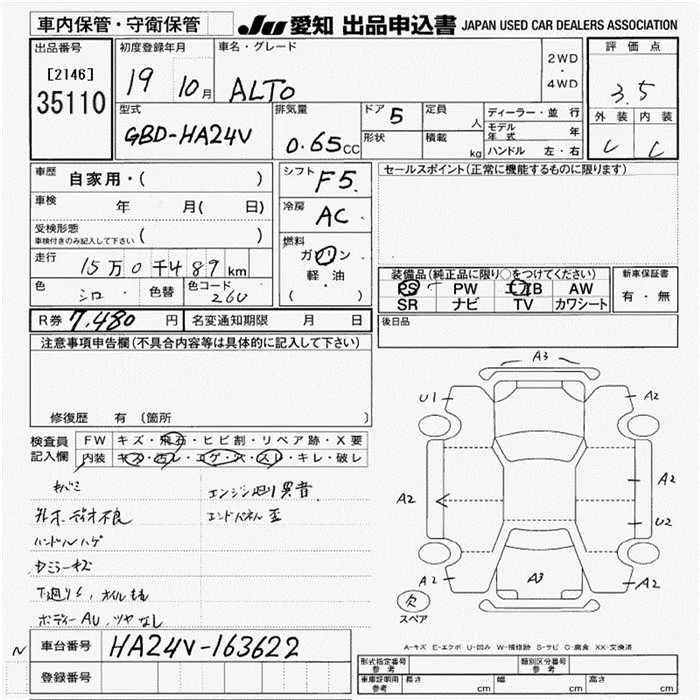 車内保管・守衛保管
JU 愛知 出品申込書 JAPAN USED CAR DEALERS ASSOCIATION
出品番号
[2146]
35110
初度登録年月
19 10月
車名・グレード
ALTO
2WD
・
4WD
評価点
3.5
外装 内装
C C
型式
GBD-HA24V
排気量
0.65CC
ドア 5
形状
定員 人
積載 kg
ディーラー・並行
モデル年式 年
ハンドル 左・右
車歴 自家用・( )
車検 年 月( 日)
受検形態
車検付きのみ記入して下さい ( )
走行 15万0千489km
色 シロ 色替 色コード 26U
シフト F5
冷房 AC
燃料
ガソリン
軽・油
( )
セールスポイント(正常に機能するものに限ります)
装備品(純正品に限り○をつけてください)
PS PW エアB AW
SR ナビ TV カワシート
新車保証書
有・無
R券 7,480円 名変通知期限 月 日
後日品
注意事項申告欄(不具合内容等は具体的に記入して下さい)
修復歴 有(箇所 )
検査員記入欄
FW キズ・飛石・ヒビ割・リペア跡・X要
内装 キズ・汚レ・コゲ・穴・スレ・キレ・破レ
エンジン廻り異音
オーディオ不良
エンドパネル歪
ハンドルハゲ
下廻りS、オイルもれ
ボディーAU、ツヤなし
A3
U1 A2
A2 A2
U2
A2 A3 A2
欠
スペア
A-キズ E-エクボ U-凹み W-補修跡 S-サビ C-腐食 XX-交換済
N
車台番号 HA24V-163622
登録番号
形式指定番号 参考 類別区分番号 参考
車庫証明用 参考 長さ cm 幅 cm 高さ cm